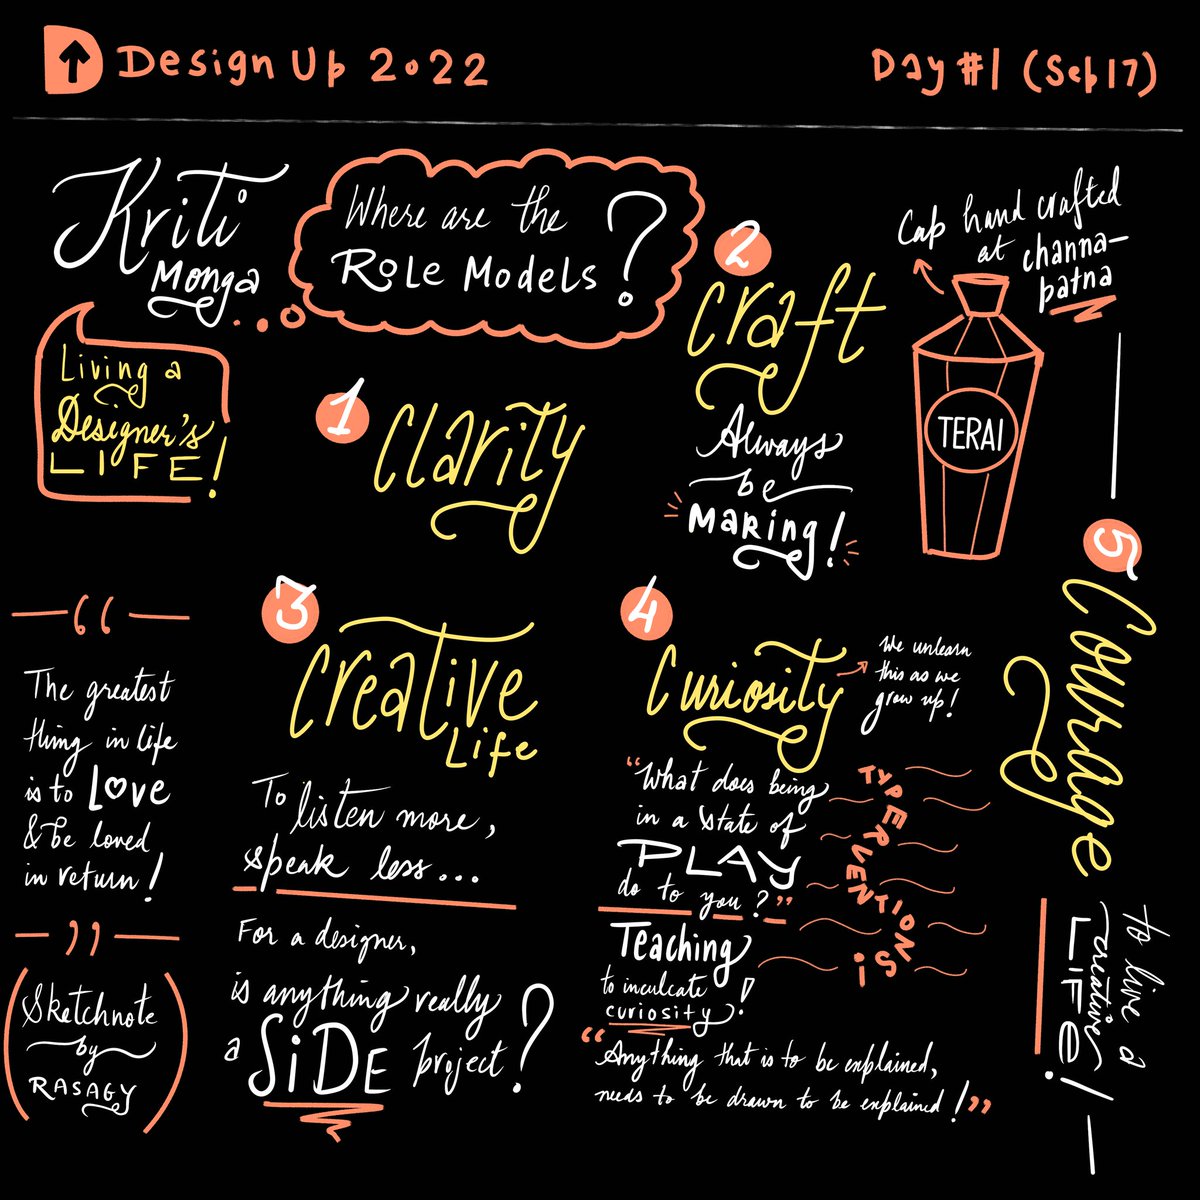 D Design Up 2022
Day #1 (Sep 17)
Kriti
Monga
Where are the
Role Models?
Living a
Designer's
LIFE!
1
Clarity
2
Craft
Always
be
Making!
Cap hand crafted
at channa-
patna
TERAI
3
Creative
Life
To listen more,
speak less...
For a designer,
is anything really
a SiDE project?
4
Curiosity
We unlearn
this as we
grow up!
"What does being
in a state of
PLAY
do to you?"
TYPERVENTIONS!
Teaching
to inculcate
curiosity!
"Anything that is to be explained,
needs to be drawn to be explained!"
5
Courage
to live a
creative
LIFE!
“
The greatest
thing in life
is to Love
& be loved
in return!
”
(Sketchnote
by
RASAGY)